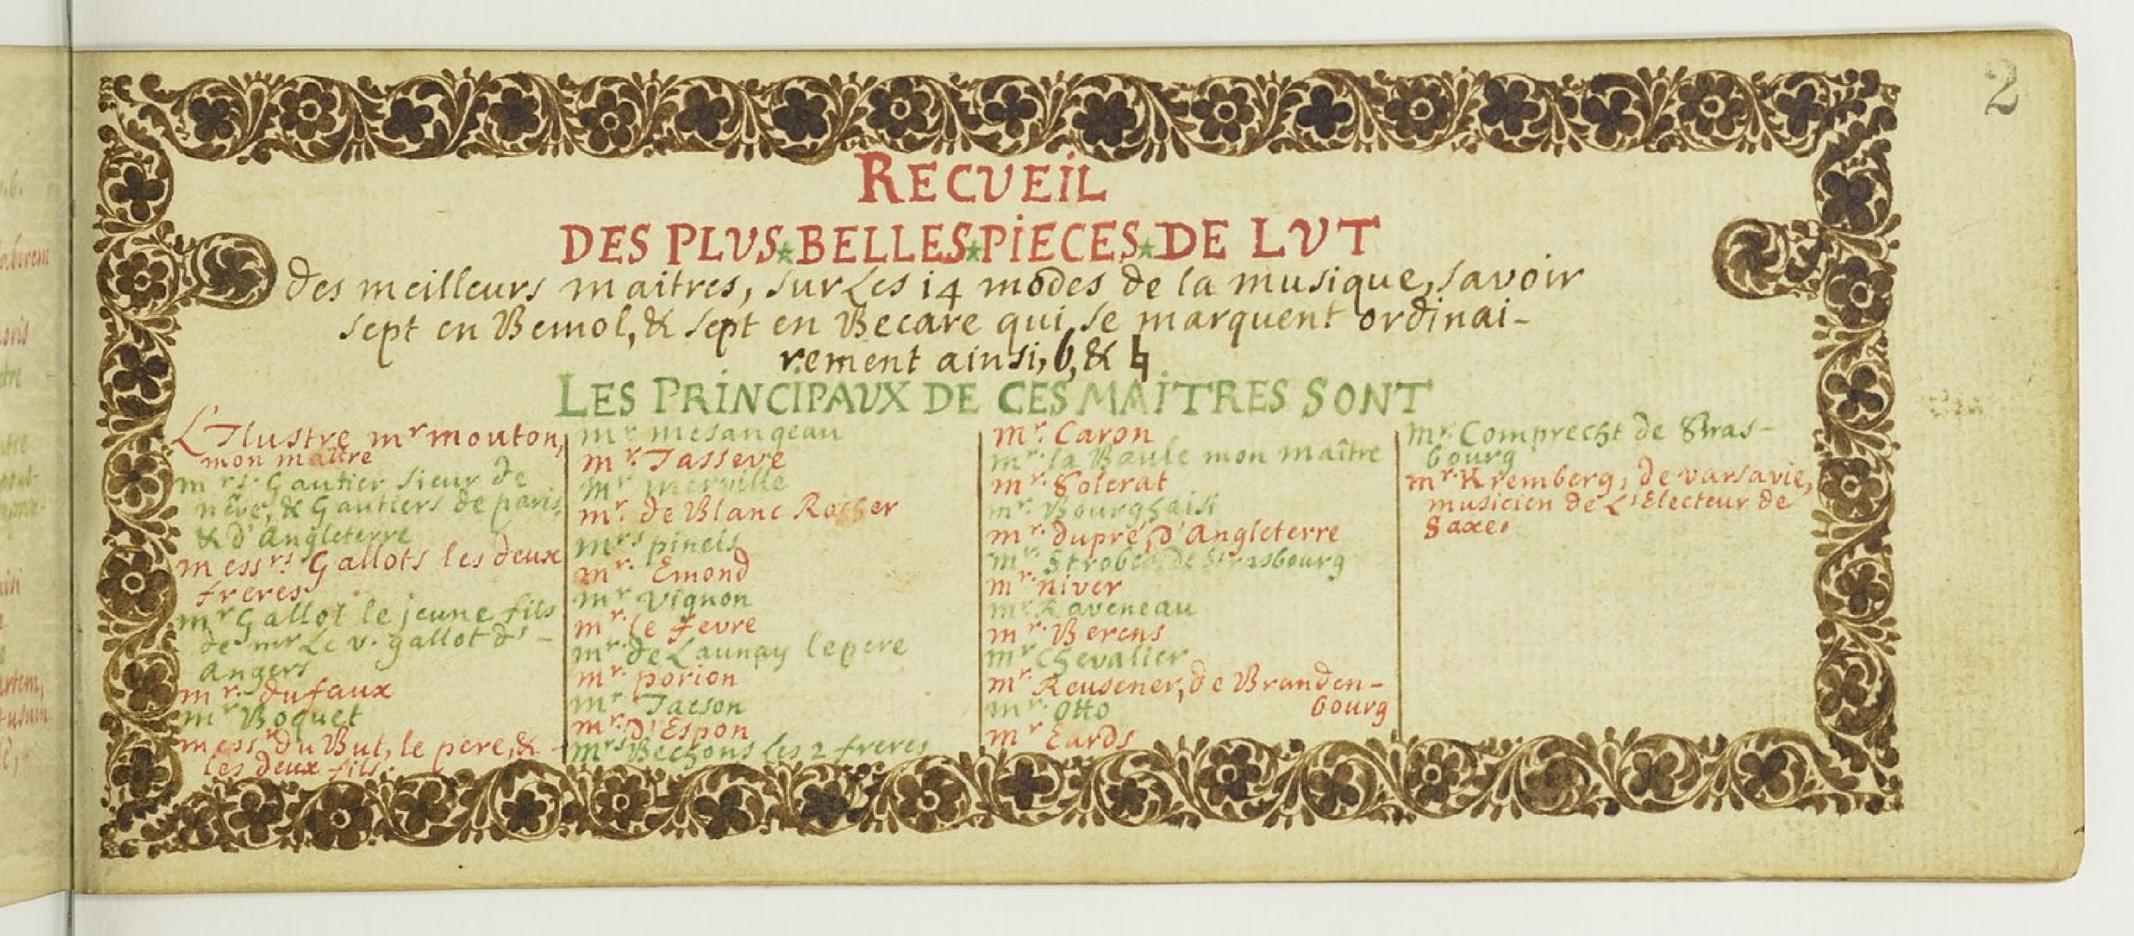 2
RECVEiL
DES PLVS*BELLES*PiECES*DE LVT
des meilleurs maitres, sur Les i4 modes de la musique, savoir
sept en Bemol, & sept en Becare qui se marquent ordinai-
rement ainsi, b, & ♮
LES PRiNCiPAVX DE CES MAiTRES SONT
L'Ilustre mr mouton,
mon maitre
mrs. Gautier sieur de
neve, & Gautiers de paris,
& d'Angleterre
messrs Gallots les deux
freres
mr Gallot le jeune fils
de mr Le v. gallot d'-
Angers
mr. dufaux
mr Boquet
messrs du But, le pere, &
les deux fils.
mr mesangeau
mr. Jasseve
mr merville
mr. de Blanc Rocher
mrs pinels
mr. Emond
mr Vignon
mr. le fevre
mr. de Launay le pere
mr. porion
mr. Jacson
mr. D'Espon
mrs Bechons les 2 freres
mr. Caron
mr. la Baule mon maître
mr. Solerat
mr. Bourghaisi
mr. dupré, d'Angleterre
mr. Strobel de Strasbourg
mr. niver
mr. Raveneau
mr. Berens
mr Chevalier
mr. Reusener, de Branden-
bourg
mr. Otto
mr. Eards
mr. Comprecht de Stras-
bourg
mr. Kremberg, de varsavie,
musicien de L'Electeur de
Saxe.